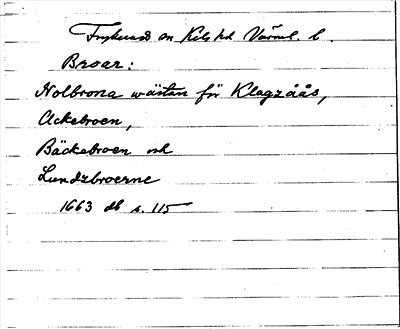 Frykerud sn Kils hd Värml. l.
Broar:
Holbrona wästan för Klagzåås,
Ackebroen,
Bäckebroen och
Lundzbroerne
1663 db s. 115